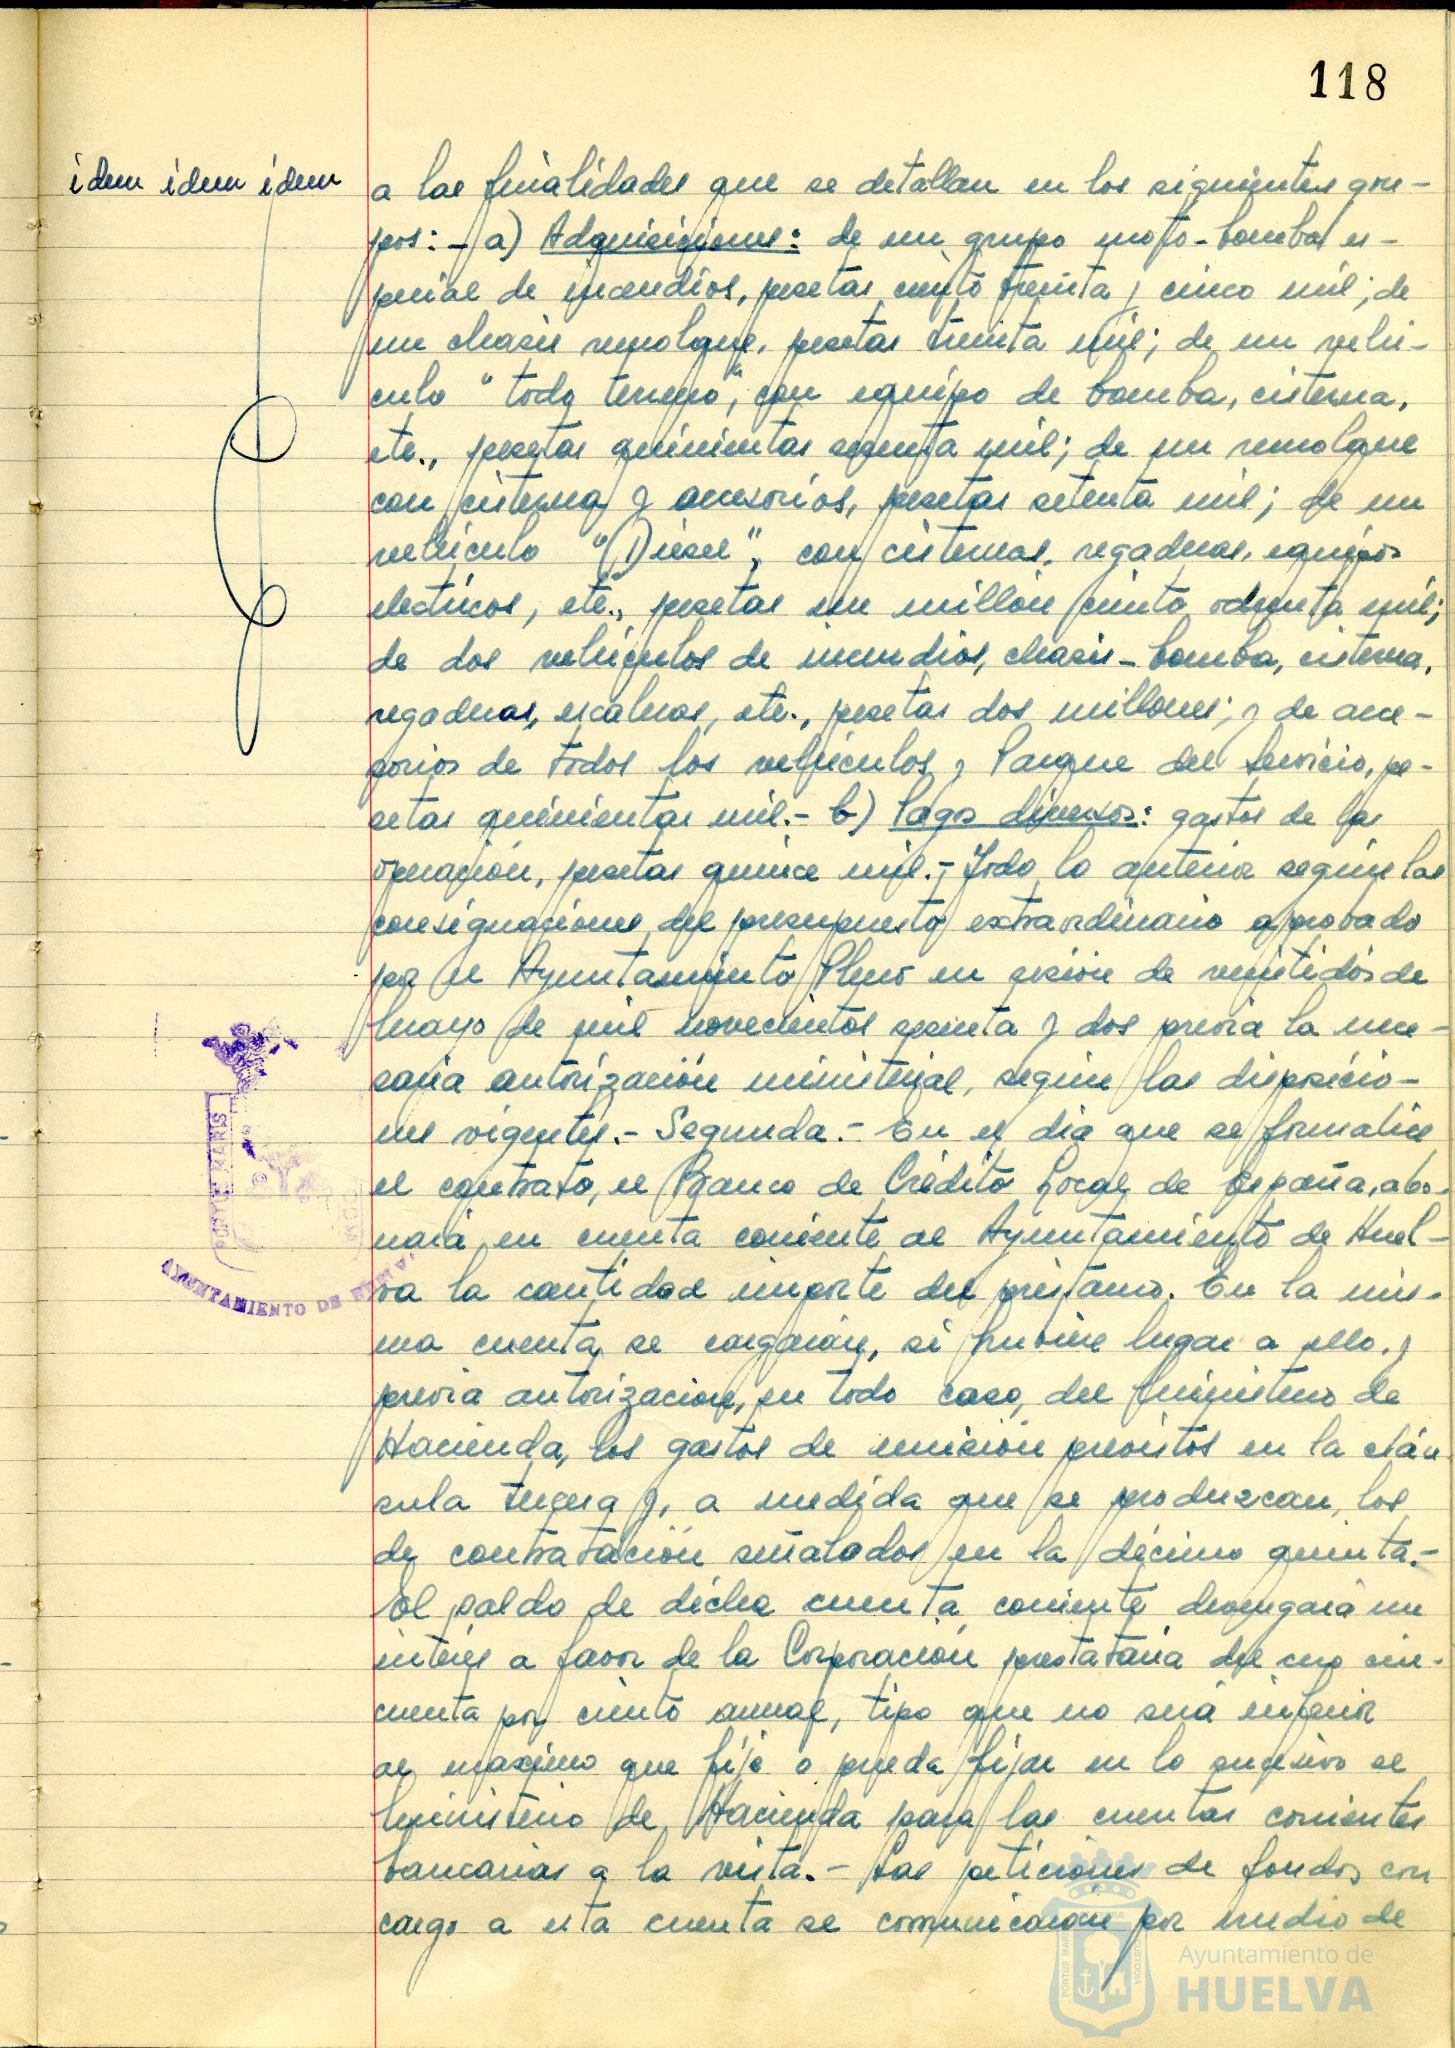 118
idem idem idem
a las finalidades que se detallan en los siguientes gru-
pos: - a) Adquisiciones: de un grupo moto-bomba es-
pecial de incendios, pesetas ciento treinta y cinco mil; de
un chasis remolque, pesetas treinta mil; de un vehi-
culo "todo terreno", con equipo de bomba, cisterna,
etc., pesetas quinientas sesenta mil; de un remolque
con cisterna y accesorios, pesetas setenta mil; de un
vehiculo "Diesel", con cisternas, regaderas, equipos
electricos, etc., pesetas un millón ciento ochenta mil;
de dos vehiculos de incendios, chasis-bomba, cisterna,
regaderas, escaleras, etc., pesetas dos millones; y de acce-
sorios de todos los vehiculos y Parque del Servicio, pe-
setas quinientas mil.- b) Pagos diversos: gastos de la
operación, pesetas quince mil.- Todo lo anterior según las
consignaciones del presupuesto extraordinario aprobado
por el Ayuntamiento Pleno en sesión de veintidós de
Mayo de mil novecientos sesenta y dos previa la nece-
saria autorización ministerial, según las disposicio-
nes vigentes.- Segunda.- En el día que se formalice
el contrato, el Banco de Crédito Local de España, abo-
nará en cuenta corriente al Ayuntamiento de Huel-
va la cantidad importe del préstamo. En la mis-
ma cuenta se cargarán, si hubiere lugar a ello, y
previa autorización, en todo caso, del Ministerio de
Hacienda, los gastos de emisión previstos en la cláu-
sula tercera y, a medida que se produzcan, los
de contratación señalados en la décimo quinta.-
El saldo de dicha cuenta corriente devengará un
interés a favor de la Corporación prestataria del uno cin-
cuenta por ciento anual, tipo que no será inferior
al maximo que fije o pueda fijar en lo sucesivo el
Ministerio de Hacienda para las cuentas corrientes
bancarias a la vista.- Las peticiones de fondos con
cargo a esta cuenta se comunicarán por medio de
PORTUS MARIS
AYUNTAMIENTO DE HUELVA
PORTUS MARIS
CUSTODIA
Ayuntamiento de
HUELVA